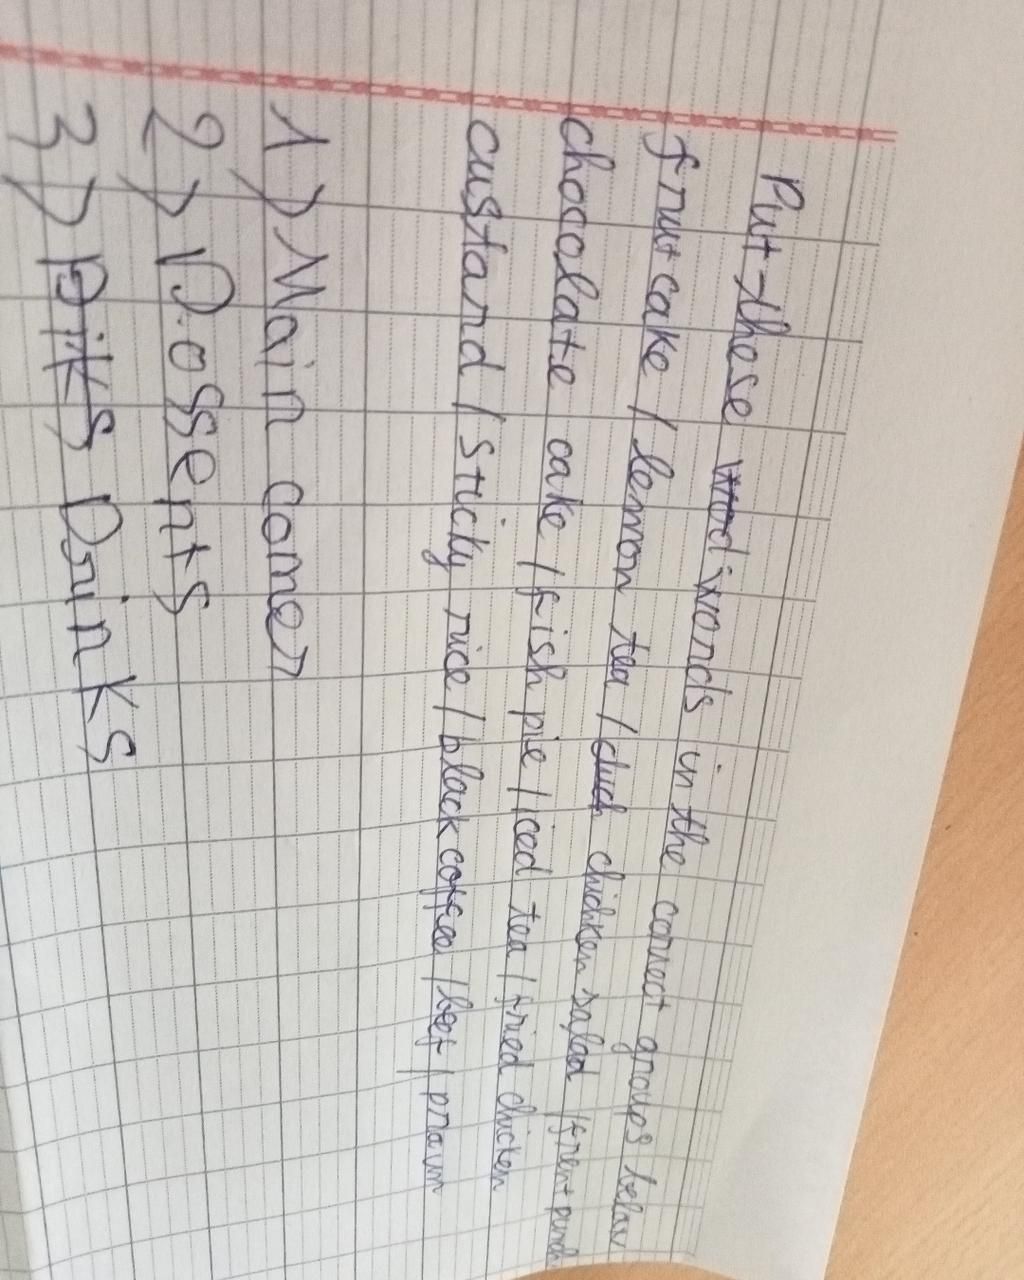 Put these words in the correct groups below
fruit cake / lemon tea / chichken salad / fruit punch
chocolate cake / fish pie / iced tea / fried chicken
custard / sticky rice / black coffee / beef / prawn
1) Main comer
2) Dossents
3) Drinks